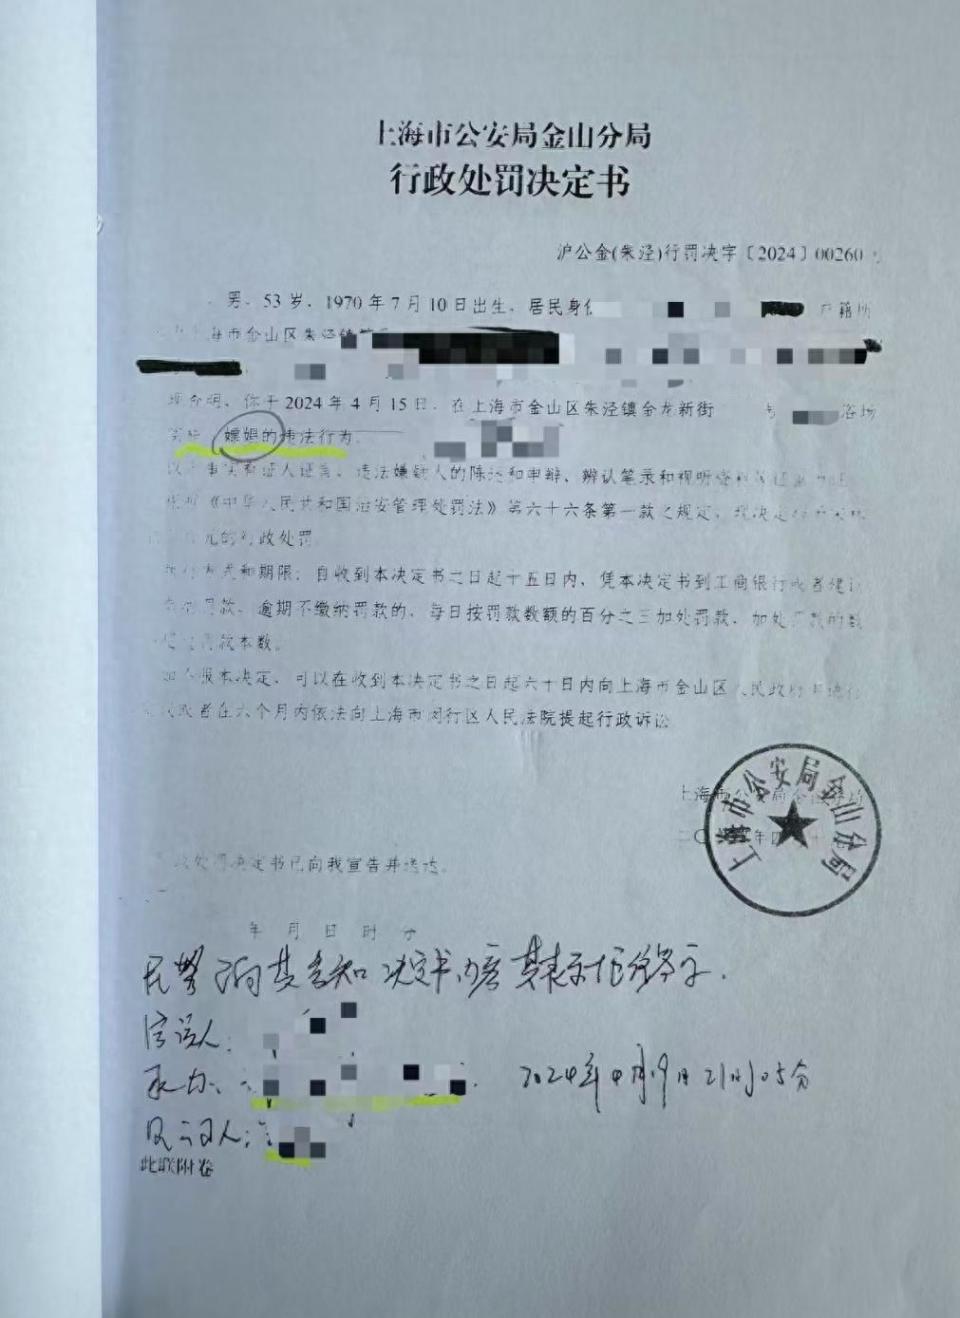 上海市公安局金山分局
行政处罚决定书
沪公金(朱泾)行罚决字〔2024〕00260
男，53岁，1970年7月10日出生，居民身份 户籍所
海市金山区朱泾镇
现查明，你于2024年4月15日，在上海市金山区朱泾镇金龙新街 号 浴场
嫖娼的违法行为。
以上事实有证人证言、违法嫌疑人的陈述和申辩、辨认笔录和视听资料
《中华人民共和国治安管理处罚法》第六十六条第一款之规定，现决定
元的行政处罚
方式和期限：自收到本决定书之日起十五日内，凭本决定书到工商银行或者建设
罚款，逾期不缴纳罚款的，每日按罚款数额的百分之三加处罚款，加处罚款的数
罚款本数。
如不服本决定，可以在收到本决定书之日起六十日内向上海市金山区人民政府申请行
或者在六个月内依法向上海市闵行区人民法院提起行政诉讼
上海市公安局金山分局
上海市公安局金山分局
处罚决定书已向我宣告并送达。
年 月 日 时 分
民警向其告知决定书内容 其表示拒绝签字.
承办:
见证人:
2024年4月19日21时05分
此联附卷